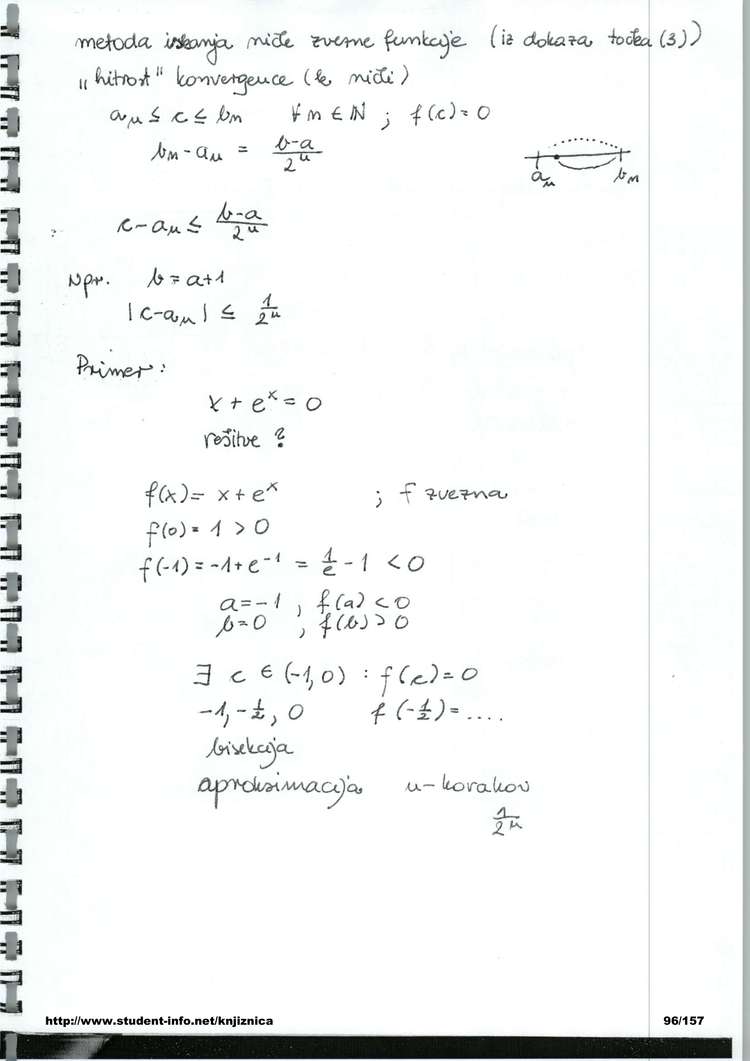 metoda iskanja ničle zvezne funkcije (iz dokaza točka (3))
"hitrost" konvergence (k ničli)
aₙ ≤ c ≤ bₙ ∀n ∈ ℕ ; f(c) = 0
bₙ - aₙ = (b-a)/2ⁿ
aₙ bₙ
c - aₙ ≤ (b-a)/2ⁿ
Npr. b = a+1
|c - aₙ| ≤ 1/2ⁿ
Primer:
x + eˣ = 0
rešitve ?
f(x) = x + eˣ ; f zvezna
f(0) = 1 > 0
f(-1) = -1 + e⁻¹ = 1/e - 1 < 0
a = -1 , f(a) < 0
b = 0 , f(b) > 0
∃ c ∈ (-1,0) : f(c) = 0
-1, -1/2, 0 f(-1/2) = ....
bisekcija
aproksimacija n-korakov
1/2ⁿ
http://www.student-info.net/knjiznica 96/157